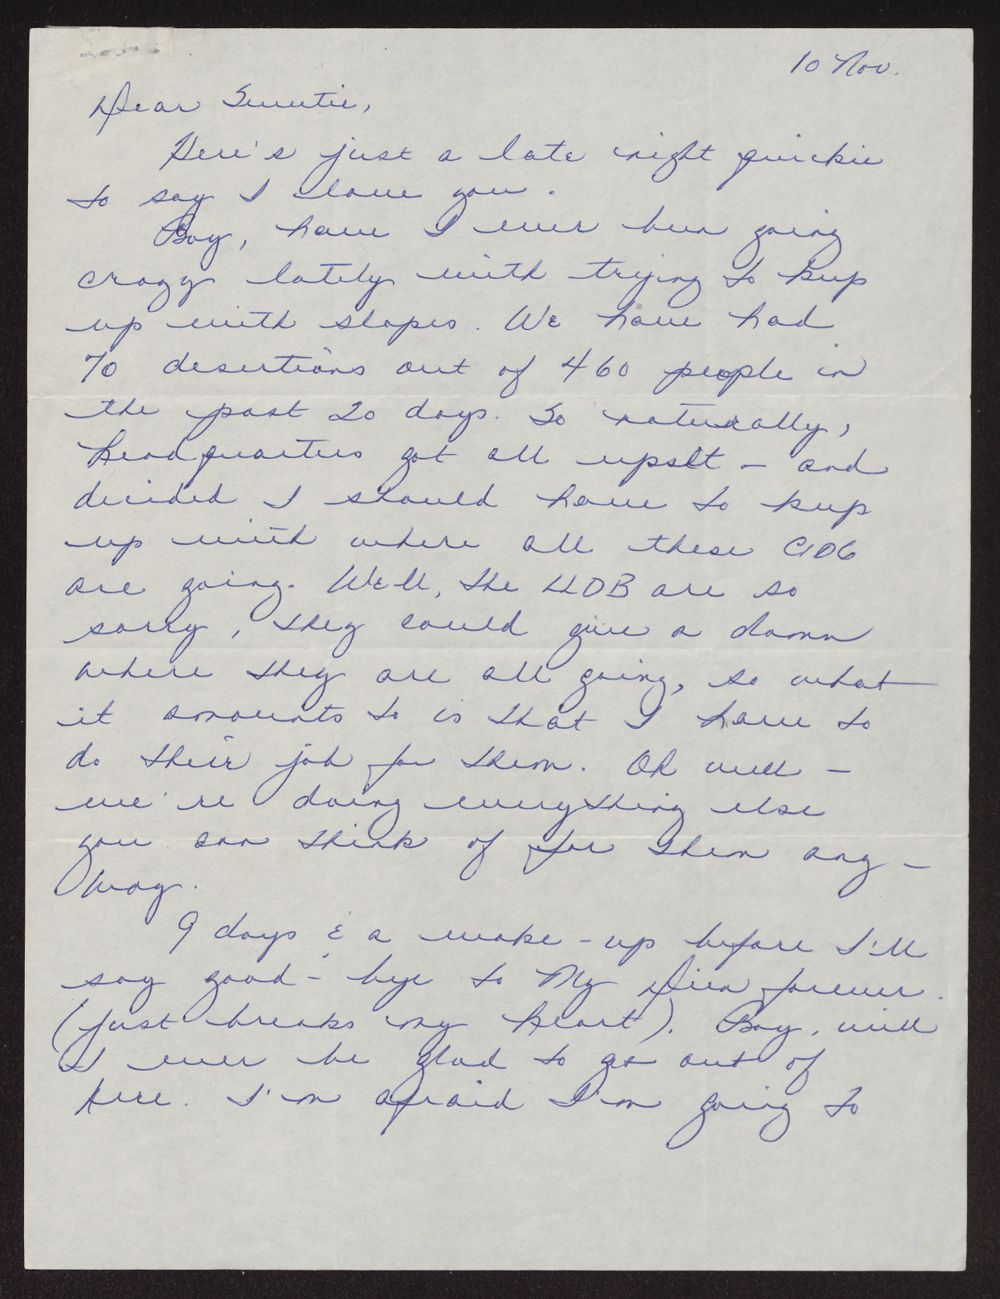 10 Nov.
Dear Sweetie,
Here's just a late night quickie
to say I love you.
Boy, have I ever been going
crazy lately with trying to keep
up with slopes. We have had
70 desertions out of 460 people in
the past 20 days. So naturally,
headquarters got all upset - and
decided I should have to keep
up with where all these CIDG
are going. Well, the LLDB are so
sorry, they could give a damn
where they are all going, so what
it amounts to is that I have to
do their job for them. Oh well -
we're doing everything else
you can think of for them any-
way.
9 days & a wake-up before I'll
say good-bye to My Dien forever.
(Just breaks my heart). Boy, will
I ever be glad to get out of
here. I'm afraid I'm going to